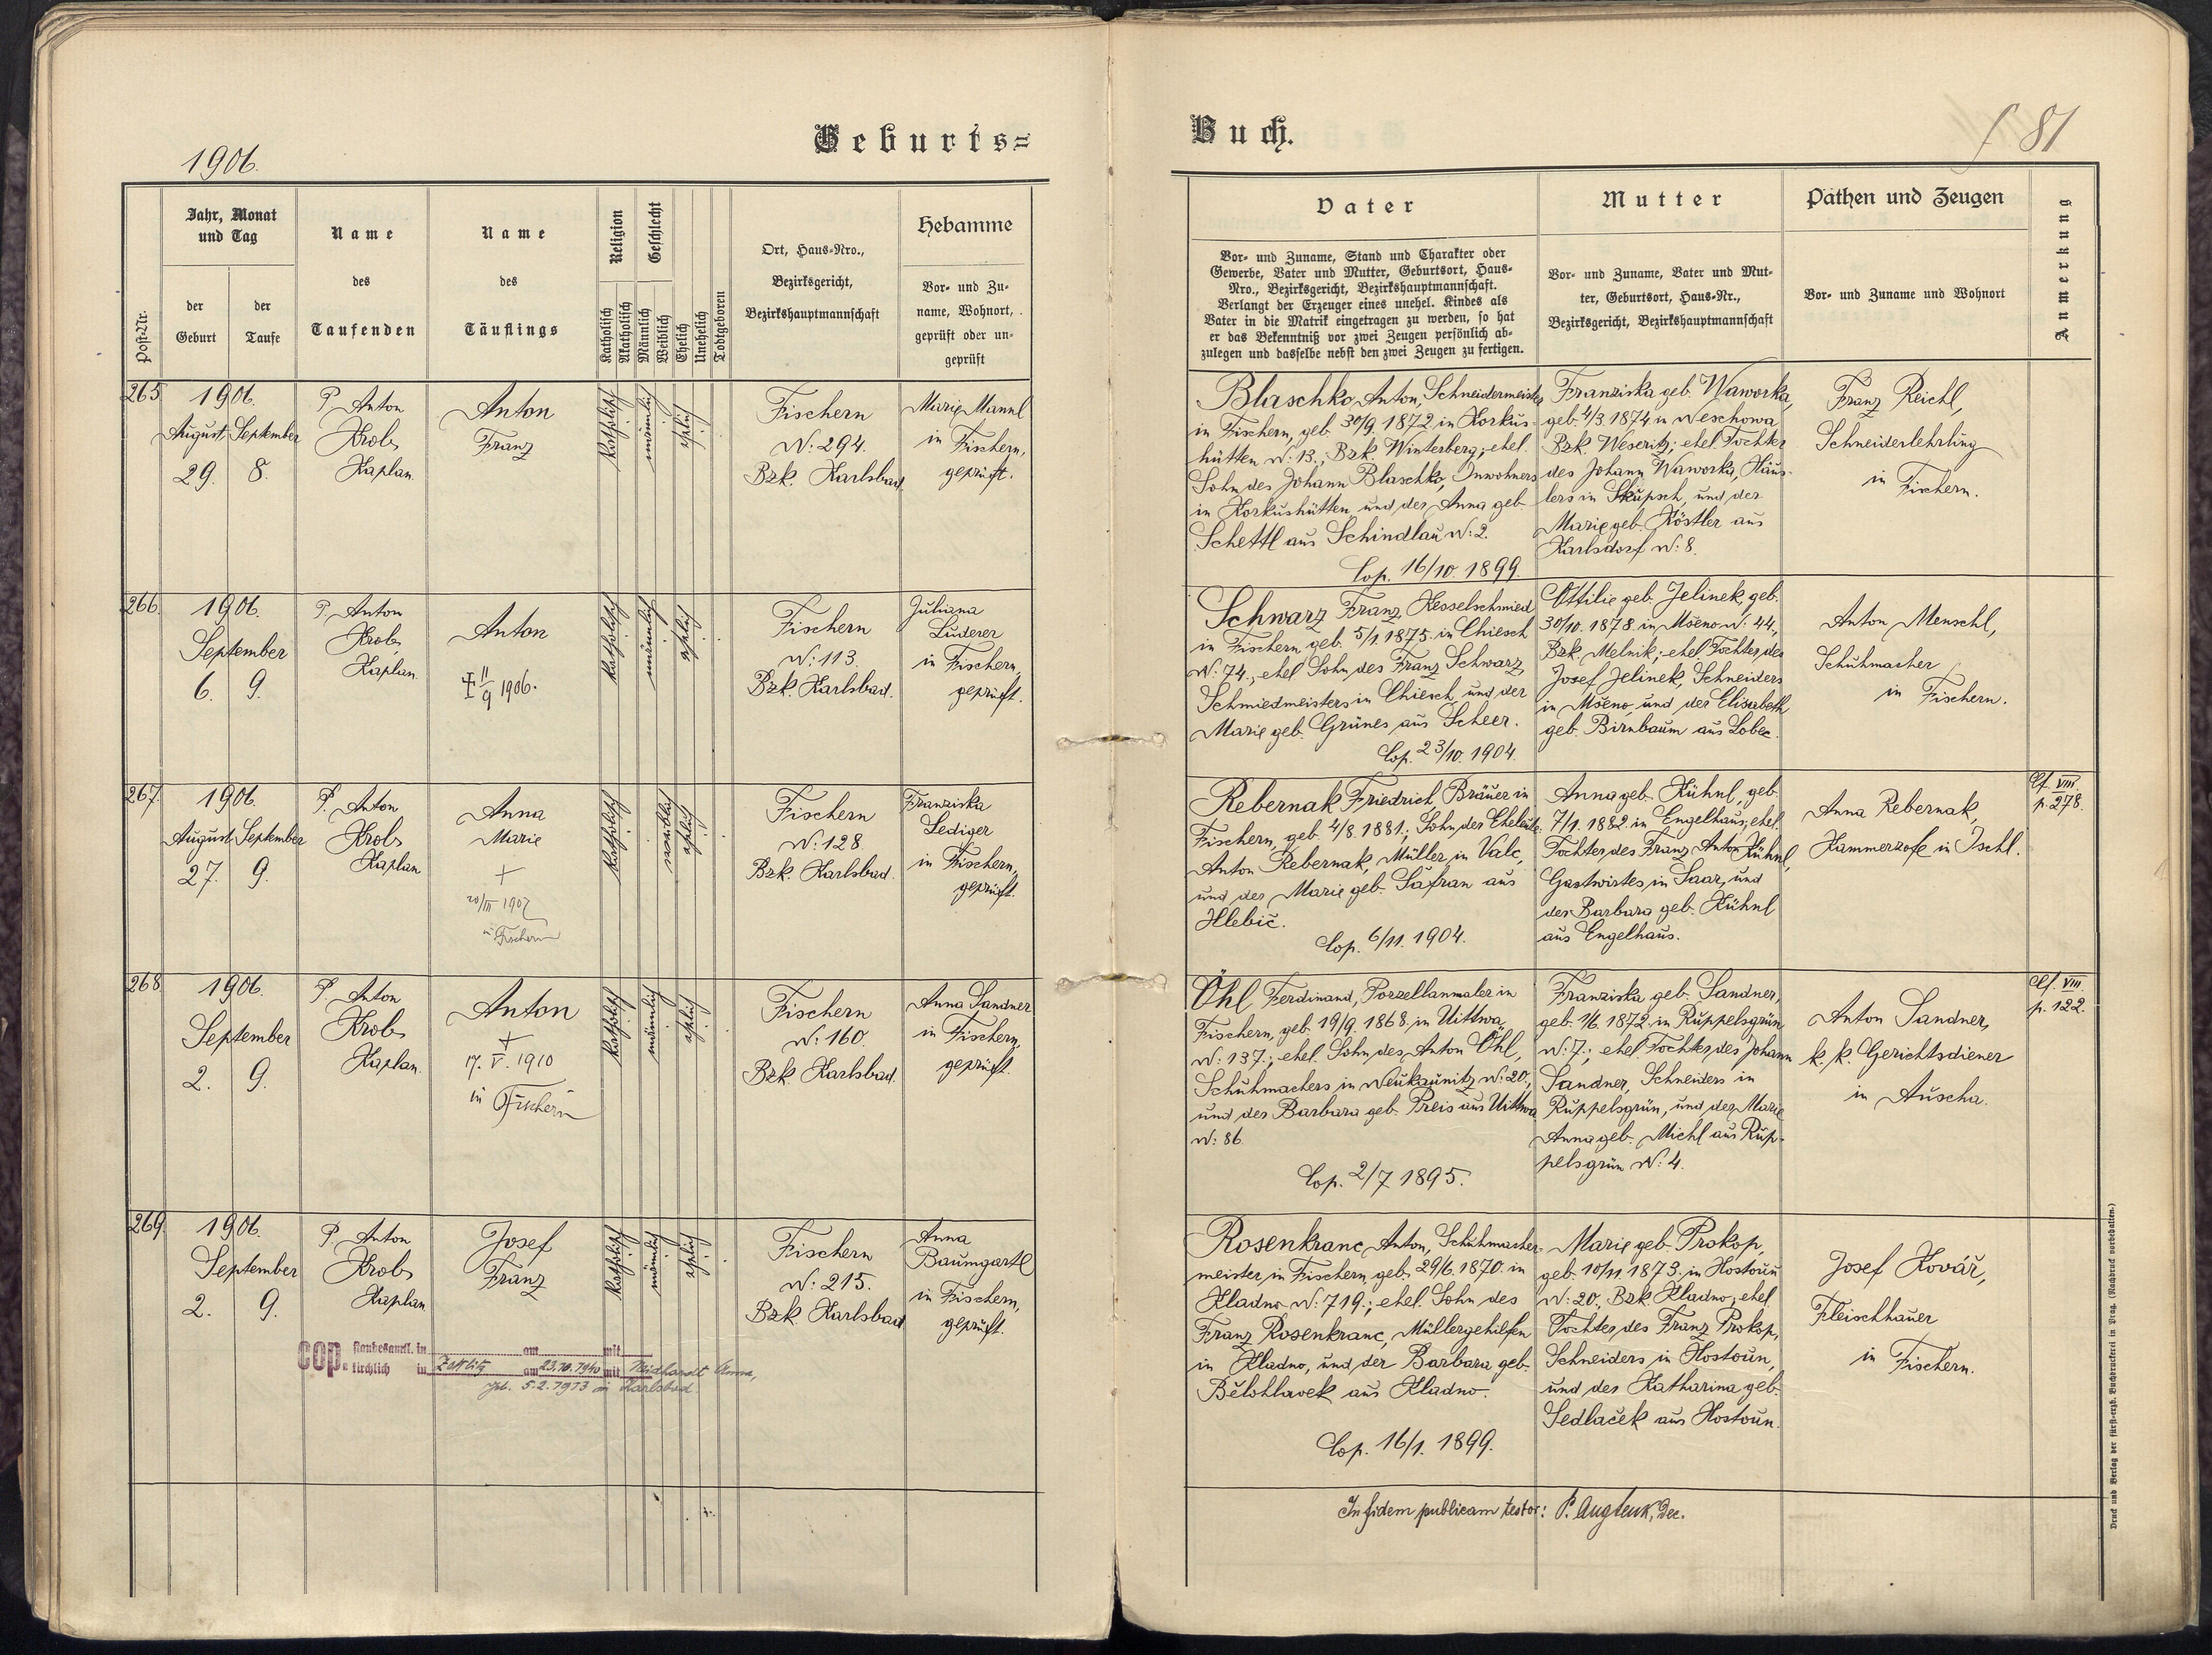 1906.
Geburts=
Post-Nr.
Jahr, Monat
und Tag
der
Geburt
der
Taufe
Name
des
Taufenden
Name
des
Täuflings
Religion
Katholisch
Akatholisch
Geschlecht
Männlich
Weiblich
Ehelich
Unehelich
Todtgeboren
Ort, Haus-Nro.,
Bezirksgericht,
Bezirkshauptmannschaft
Hebamme
Vor- und Zu-
name, Wohnort,
geprüft oder un-
geprüft
265
1906.
August
29.
September
8.
P. Anton
Krob,
Kaplan.
Anton
Franz
katholisch
männlich
ehelich
Fischern
N: 294.
Bzk. Karlsbad.
Marie Mannl
in Fischern,
geprüft.
266.
1906.
September
6. 9.
P. Anton
Krob,
Kaplan.
Anton
11/9 1906.
katholisch
männlich
ehelich
Fischern
N: 113.
Bzk. Karlsbad.
Juliana
Luderer
in Fischern,
geprüft.
267.
1906.
August
27.
September
9.
P. Anton
Krob,
Kaplan
Anna
Marie
+
20/III 1907
in Fischern
katholisch
weiblich
ehelich
Fischern
N: 128.
Bzk. Karlsbad.
Franziska
Lediger
in Fischern,
geprüft.
268.
1906.
September
2. 9.
P. Anton
Krob,
Kaplan.
Anton
+
17. V. 1910
in Fischern
katholisch
männlich
ehelich
Fischern
N: 160.
Bzk. Karlsbad.
Anna Sandner
in Fischern,
geprüft.
269.
1906.
September
2. 9.
P. Anton
Krob,
Kaplan
Josef
Franz
katholisch
männlich
ehelich
Fischern
N: 215.
Bzk. Karlsbad
Anna
Baumgartl
in Fischern,
geprüft.
cop. standesamtl. in am mit
kirchlich in Zettlitz am 23.10.1940 mit Neidhardt Anna,
geb. 5.2.1913 in Karlsbad.
Buch.
f 81
Vater
Vor- und Zuname, Stand und Charakter oder
Gewerbe, Vater und Mutter, Geburtsort, Haus-
Nro., Bezirksgericht, Bezirkshauptmannschaft.
Verlangt der Erzeuger eines unehel. Kindes als
Vater in die Matrik eingetragen zu werden, so hat
er das Bekenntniß vor zwei Zeugen persönlich ab-
zulegen und dasselbe nebst den zwei Zeugen zu fertigen.
Mutter
Vor- und Zuname, Vater und Mut-
ter, Geburtsort, Haus-Nr.,
Bezirksgericht, Bezirkshauptmannschaft
Pathen und Zeugen
Vor- und Zuname und Wohnort
Anmerkung
Blaschko Anton, Schneidermeister
in Fischern, geb. 30/9. 1872 in Korkus-
hütten N: 13., Bzk. Winterberg; ehel.
Sohn des Johann Blaschko, Inwohners
in Korkushütten und der Anna geb.
Schettl aus Schindlau N: 2.
Cop. 16/10. 1899.
Franziska geb. Waworka,
geb. 4/3. 1874 in Weschowa
Bzk. Weseritz; ehel. Tochter
des Johann Waworka, Häus-
lers in Skupsch, und der
Marie geb. Köstler aus
Karlsdorf N: 8.
Franz Reichl,
Schneiderlehrling
in Fischern.
Schwarz Franz, Kesselschmied
in Fischern, geb. 5/1. 1875. in Chiesch
N: 74., ehel. Sohn des Franz Schwarz,
Schmiedmeisters in Chiesch, und der
Marie geb. Grünes aus Scheer.
Cop. 23/10. 1904.
Ottilie geb. Jelinek, geb.
30/10. 1878. in Mšeno N: 44.,
Bzk. Melnik; ehel. Tochter des
Josef Jelinek, Schneiders
in Mšeno, und der Elisabeth
geb. Birnbaum aus Lobec.
Anton Menschl,
Schuhmacher
in Fischern.
Rebernak Friedrich, Bräuer in
Fischern, geb. 4/8. 1881.; Sohn der Eheleute
Anton Rebernak, Müller in Valc,
und der Marie geb. Šafran aus
Hlebič.
Cop. 6/11. 1904.
Anna geb. Kühnl, geb.
7/1. 1882. in Engelhaus; ehel.
Tochter des Franz Anton Kühnl,
Gastwirtes in Saar, und
der Barbara geb. Kühnl
aus Engelhaus.
Anna Rebernak,
Kammerzofe in Ischl.
Cf. VIII.
p. 278.
Öhl Ferdinand, Porzellanmaler in
Fischern, geb. 19/9. 1868. in Uittwa
N: 137.; ehel. Sohn des Anton Öhl,
Schuhmachers in Neukaunitz N: 20.,
und der Barbara geb. Preis aus Uittwa
N: 86.
Cop. 2/7 1895.
Franziska geb. Sandner,
geb. 1/6. 1872. in Ruppelsgrün
N: 7.; ehel. Tochter des Johann
Sandner, Schneiders in
Ruppelsgrün, und der Marie
Anna geb. Michl aus Rup-
pelsgrün N: 4.
Anton Sandner,
k. k. Gerichtsdiener
in Auscha.
Cf. VIII.
p. 122.
Rosenkranc Anton, Schuhmacher-
meister in Fischern, geb. 29/6. 1870. in
Kladno N: 719.; ehel. Sohn des
Franz Rosenkranc, Müllergehilfen
in Kladno, und der Barbara geb.
Bělohlavek aus Kladno.
Cop. 16/1. 1899.
Marie geb. Prokop,
geb. 10/11. 1873. in Hostoun
N: 20., Bzk. Kladno; ehel.
Tochter des Franz Prokop,
Schneiders in Hostoun,
und der Katharina geb.
Sedlaček aus Hostoun.
Josef Kovář,
Fleischhauer
in Fischern.
In fidem publicam testor: P. Augtenk, Dec.
Druck und Verlag der fürst-erzb. Buchdruckerei in Prag. (Nachdruck vorbehalten.)